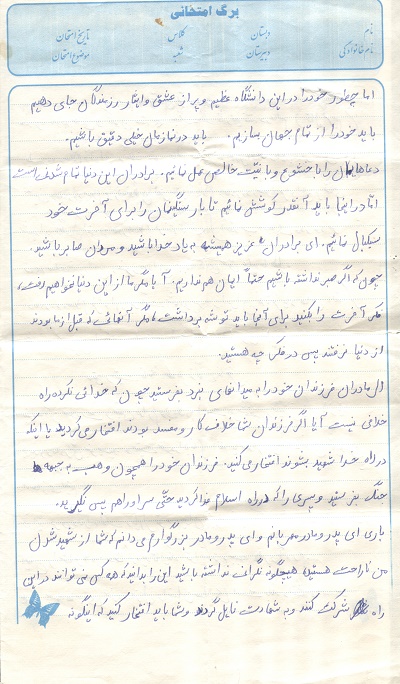 برگ امتحانی
نام
نام خانوادگی
دبستان
دبیرستان
کلاس
شعبه
تاریخ امتحان
موضوع امتحان
اما چطور خود را در این دانشگاه عظیم و پر از عشق و ایثار رزمندگان جای دهیم
باید خود را از تمام جهان بسازیم. باید در نمازمان خیلی دقیق باشیم.
دعاهایمان را با خشوع و با نیّت خالص عمل نمائیم. برادران این دنیا تمام شدنی است
امّا در اینجا باید آنقدر کوشش نمائیم تا بار سنگینمان را برای آخرت خود
سبکبال نمائیم. ای برادران عزیز همیشه به یاد خدا باشید و مردان صابر باشید.
چون که اگر صبر نداشته باشیم حتماً ایمان هم نداریم. آیا مگر ما از این دنیا نخواهیم رفت،
فکر آخرت را بکنید برای آنجا باید توشه برداشت، مگر آنهائی که قبل از ما بودند
از دنیا نرفتند پس در فکر چه هستید.
ای مادران فرزندان خود را به میدانهای نبرد بفرستید چون که خدائی نکرده راه
خلافی نیست آیا اگر فرزندان شما خلاف کار و مفسد بودند افتخار می‌کردید یا اینکه
در راه خدا شهید بشوند افتخار می‌کنید. فرزندان خود را همچون وهب به جبهه
جنگ بفرستید و پسری را که در راه اسلام عطا کردید حتّی سر او را هم پس نگیرید.
باری ای پدر و مادر مهربانم و ای پدر و مادر بزرگوارم می‌دانم که شما از شهید شدن
من ناراحت هستید، هیچگونه نگرانی نداشته باشید این را بدانید که هر کس نمی‌تواند در این
راه شرکت کنند و به شهادت نایل گردد و شما باید افتخار کنید که اینگونه